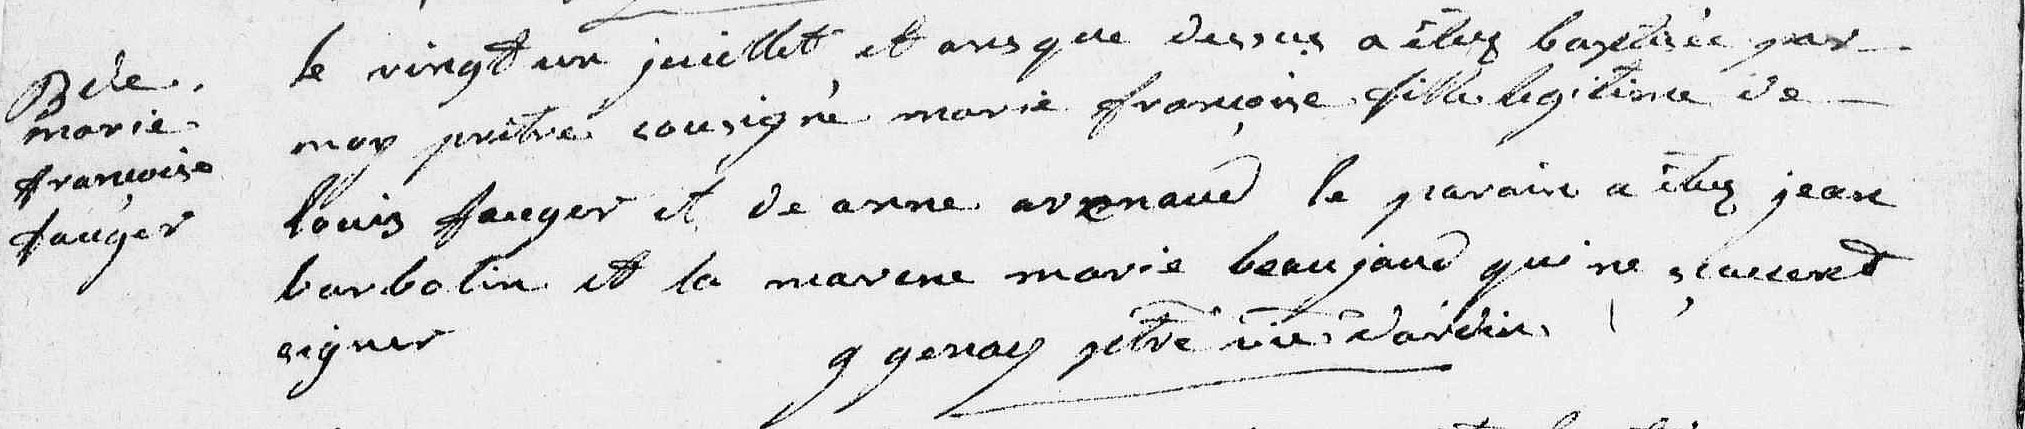 Bde.
marie
françoise
fauger
le vingt un juillet et ans que dessus a étuz baptisée par
moy prêtre sousigné marie françoise fille legitime de
louis fauger et de anne arnaud le parain a étuz jean
barbotin et la marene marie beaujaud qui ne sçauent
signer
g genay ptre vic d'ardin